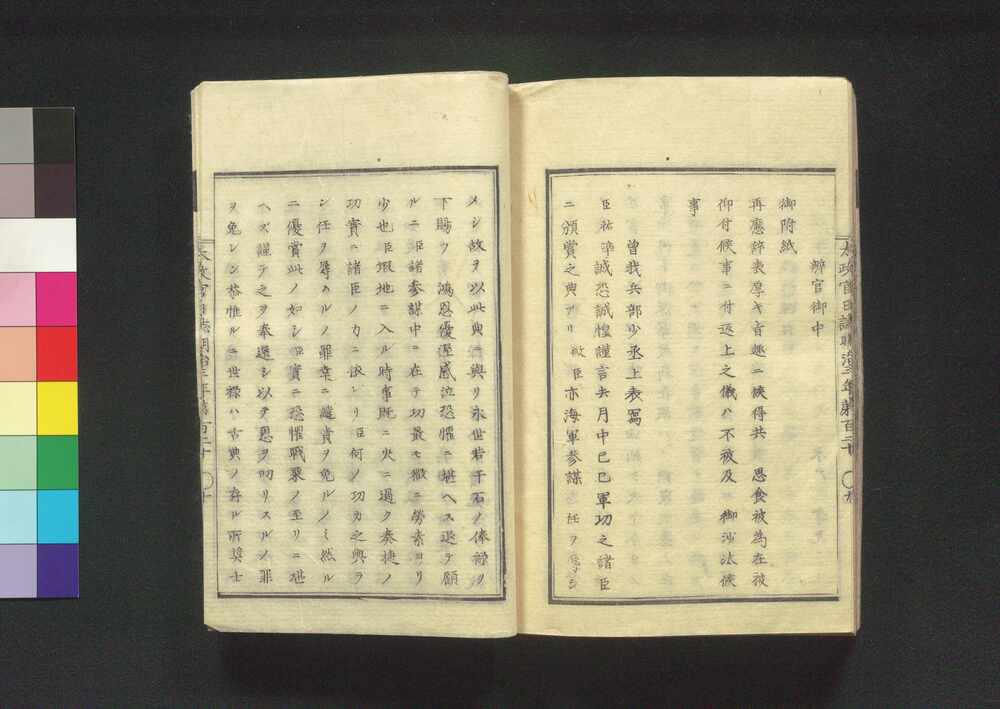 辨官御中
御附紙
再應辭表厚キ旨趣ニ候得共 思食被為在被
仰付候事ニ付返上之儀ハ不被及 御沙汰候
事
曾我兵部少丞上表寫
臣祐準誠恐誠惶謹言去月中己巳軍功之諸臣
ニ頒賞之典アリ 微臣亦海軍參謀ノ任ヲ
メシ故ヲ以此典ニ與リ永世若干石ノ俸祿ヲ
下賜ウ 鴻恩優渥感泣恐懼ニ堪ヘス退テ顧
ルニ臣諸參謀中ニ在テ功最モ微ニ勞素ヨリ
少也臣蝦地ニ入ル時事既ニ火ニ過ク奏捷ノ
功實ニ諸臣ノ力ニ依レリ臣何ノ功カ之與ラ
ン任ヲ辱カルノ罪幸ニ譴責ヲ免ルノミ然ル
ニ優賞此ノ如シ臣實ニ恐懼戰栗ノ至リニ堪
ヘズ謹テ之ヲ奉還シ以テ恩ヲ叨リスルノ罪
ヲ免レン恭惟ルニ世祿ハ古典ノ存ル所奨士
太政官日誌明治三年第百二十